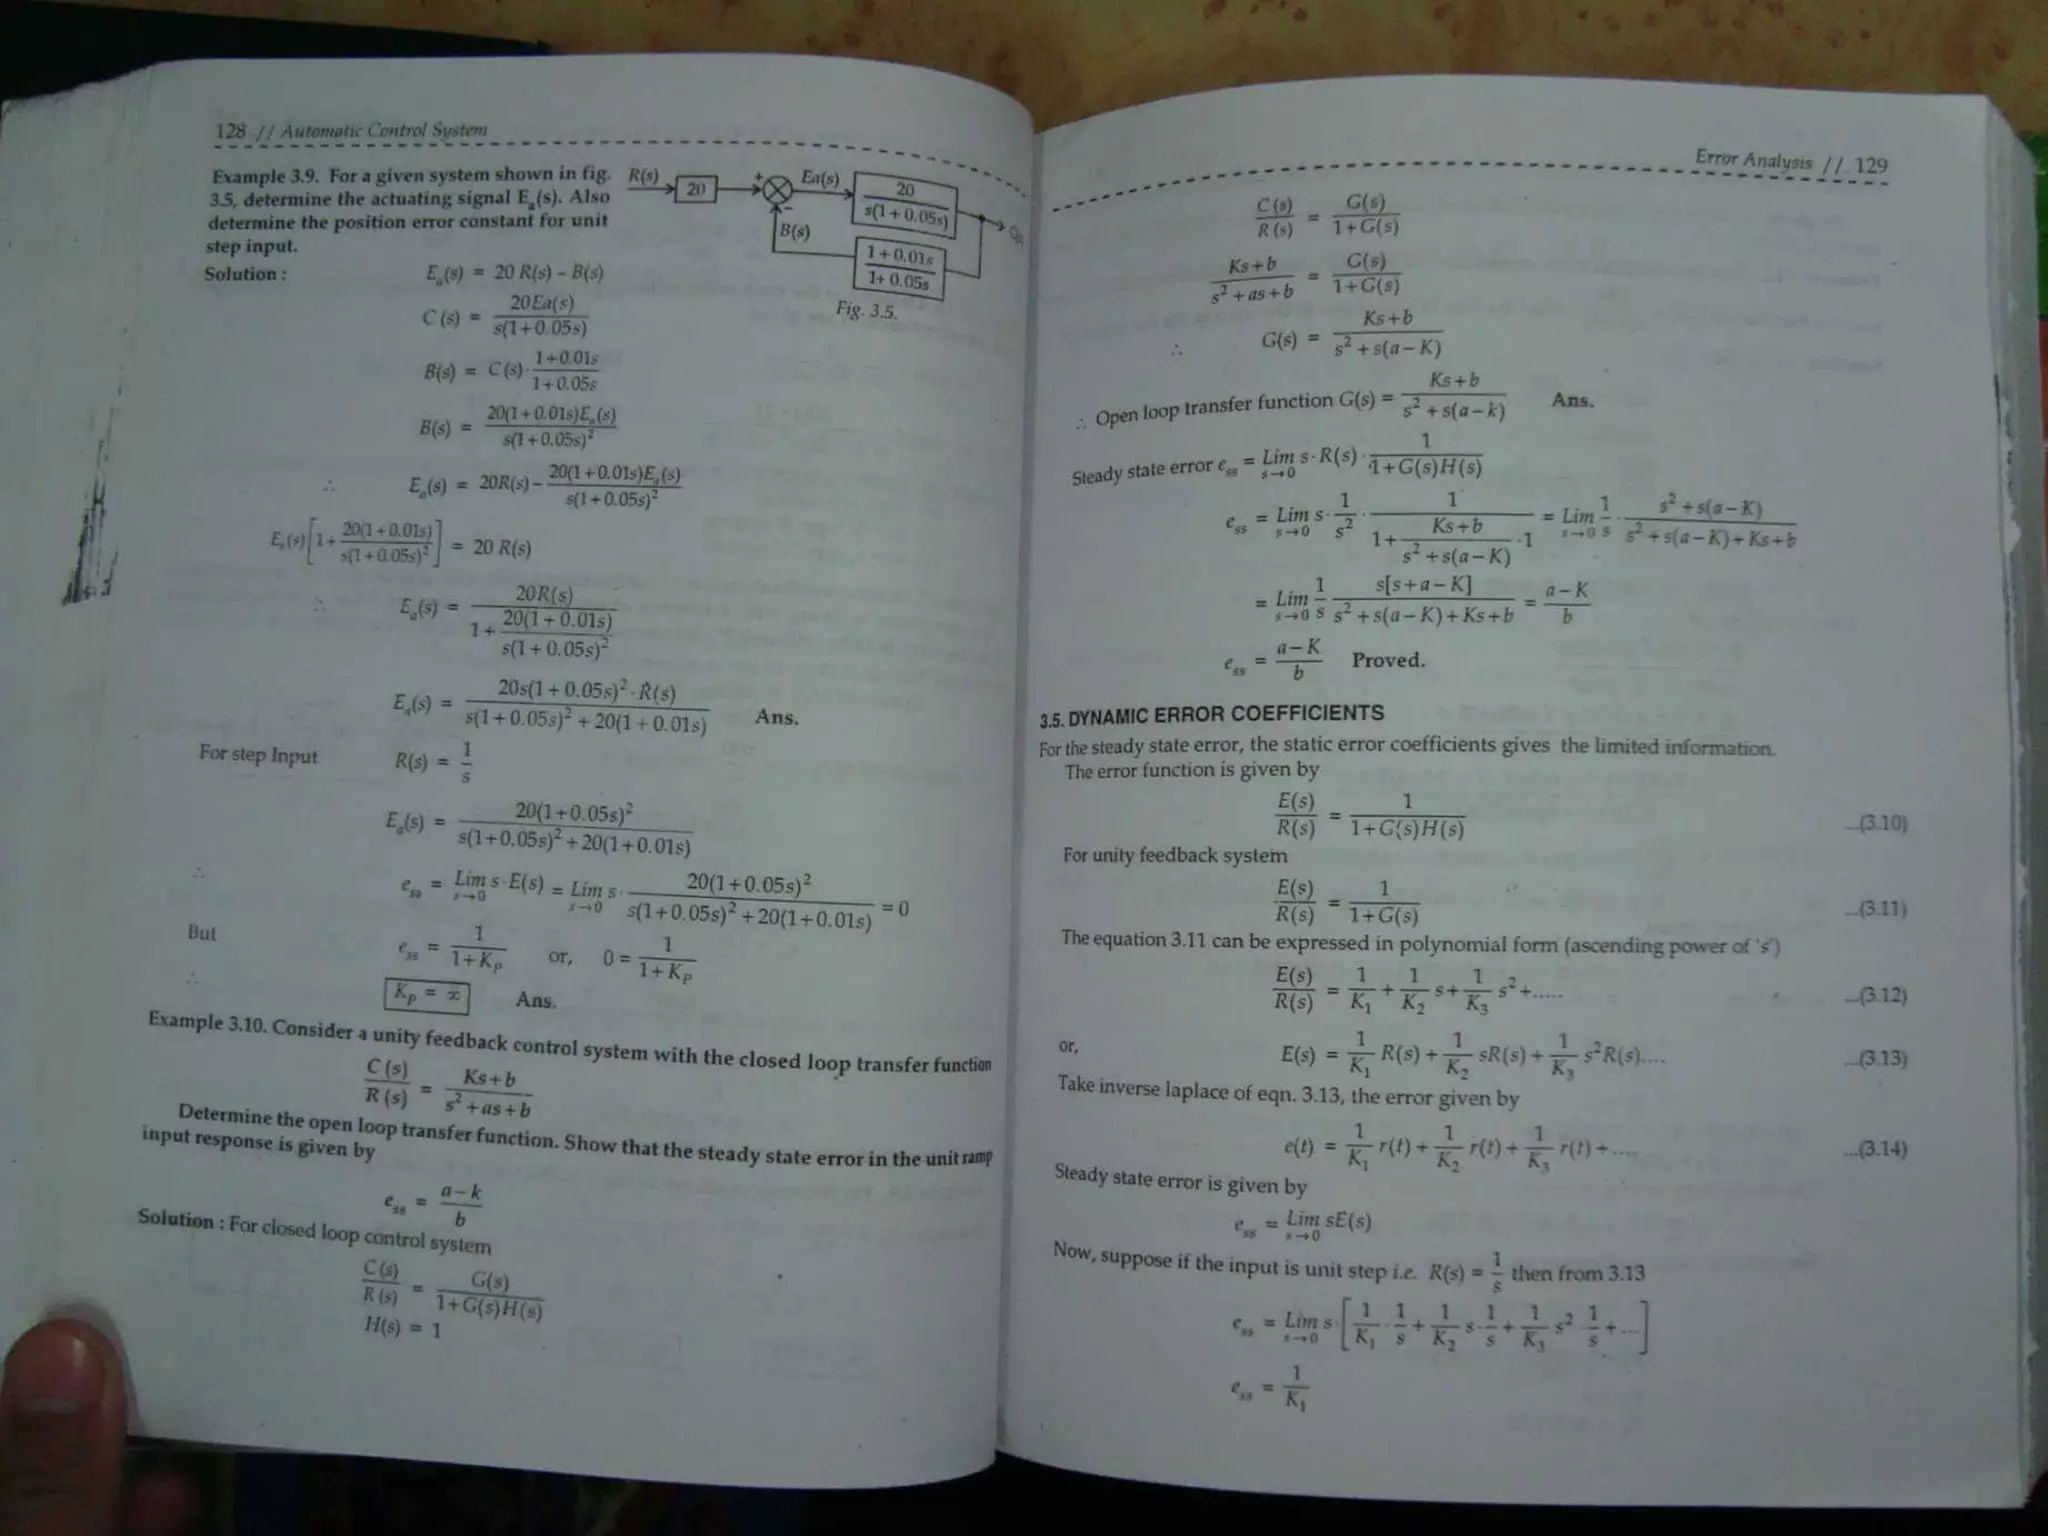 128 // Automatic Control System
Example 3.9. For a given system shown in fig.
3.5, determine the actuating signal Eₐ(s). Also
determine the position error constant for unit
step input.
R(s) 20 + − Ea(s) 20 / s(1 + 0.05s)
B(s) 1 + 0.01s / 1 + 0.05s
Fig. 3.5.
Solution : Eₐ(s) = 20 R(s) – B(s)
C (s) = 20Ea(s) / s(1+0.05s)
B(s) = C (s) · 1+0.01s / 1+0.05s
B(s) = 20(1+0.01s)Eₐ(s) / s(1+0.05s)²
∴ Eₐ(s) = 20R(s) – 20(1+0.01s)Eₐ(s) / s(1+0.05s)²
Eₐ(s) [1 + 20(1+0.01s) / s(1+0.05s)²] = 20 R(s)
∴ Eₐ(s) = 20R(s) / 1 + 20(1+0.01s) / s(1+0.05s)²
Eₐ(s) = 20s(1+0.05s)² · R(s) / s(1+0.05s)² + 20(1+0.01s) Ans.
For step Input R(s) = 1 / s
Eₐ(s) = 20(1+0.05s)² / s(1+0.05s)² + 20(1+0.01s)
∴ eₛₛ = Lim s→0 s · E(s) = Lim s→0 s · 20(1+0.05s)² / s(1+0.05s)² + 20(1+0.01s) = 0
But eₛₛ = 1 / 1+K_P or, 0 = 1 / 1+K_P
∴ K_P = ∞ Ans.
Example 3.10. Consider a unity feedback control system with the closed loop transfer function
C (s) / R (s) = Ks+b / s² + as + b
Determine the open loop transfer function. Show that the steady state error in the unit ramp
input response is given by
eₛₛ = a – k / b
Solution : For closed loop control system
C (s) / R (s) = G(s) / 1+G(s)H(s)
H(s) = 1
Error Analysis // 129
C (s) / R (s) = G(s) / 1+G(s)
Ks+b / s² + as + b = G(s) / 1+G(s)
∴ G(s) = Ks+b / s² + s(a – K)
∴ Open loop transfer function G(s) = Ks+b / s² + s(a – k) Ans.
Steady state error eₛₛ = Lim s→0 s · R(s) · 1 / 1+G(s)H(s)
eₛₛ = Lim s→0 s · 1 / s² · 1 / 1 + Ks+b / s² + s(a – K) · 1 = Lim s→0 1 / s · s² + s(a – K) / s² + s(a – K) + Ks + b
= Lim s→0 1 / s s[s + a – K] / s² + s(a – K) + Ks + b = a – K / b
eₛₛ = a – K / b Proved.
3.5. DYNAMIC ERROR COEFFICIENTS
For the steady state error, the static error coefficients gives the limited information.
The error function is given by
E(s) / R(s) = 1 / 1+G(s)H(s) ...(3.10)
For unity feedback system
E(s) / R(s) = 1 / 1+G(s) ...(3.11)
The equation 3.11 can be expressed in polynomial form (ascending power of 's')
E(s) / R(s) = 1 / K₁ + 1 / K₂ s + 1 / K₃ s² + ..... ...(3.12)
or, E(s) = 1 / K₁ R(s) + 1 / K₂ sR(s) + 1 / K₃ s²R(s).... ...(3.13)
Take inverse laplace of eqn. 3.13, the error given by
e(t) = 1 / K₁ r(t) + 1 / K₂ r(t) + 1 / K₃ r(t) + .... ...(3.14)
Steady state error is given by
eₛₛ = Lim s→0 sE(s)
Now, suppose if the input is unit step i.e. R(s) = 1 / s then from 3.13
eₛₛ = Lim s→0 s [1 / K₁ · 1 / s + 1 / K₂ s · 1 / s + 1 / K₃ s² · 1 / s + ...]
eₛₛ = 1 / K₁